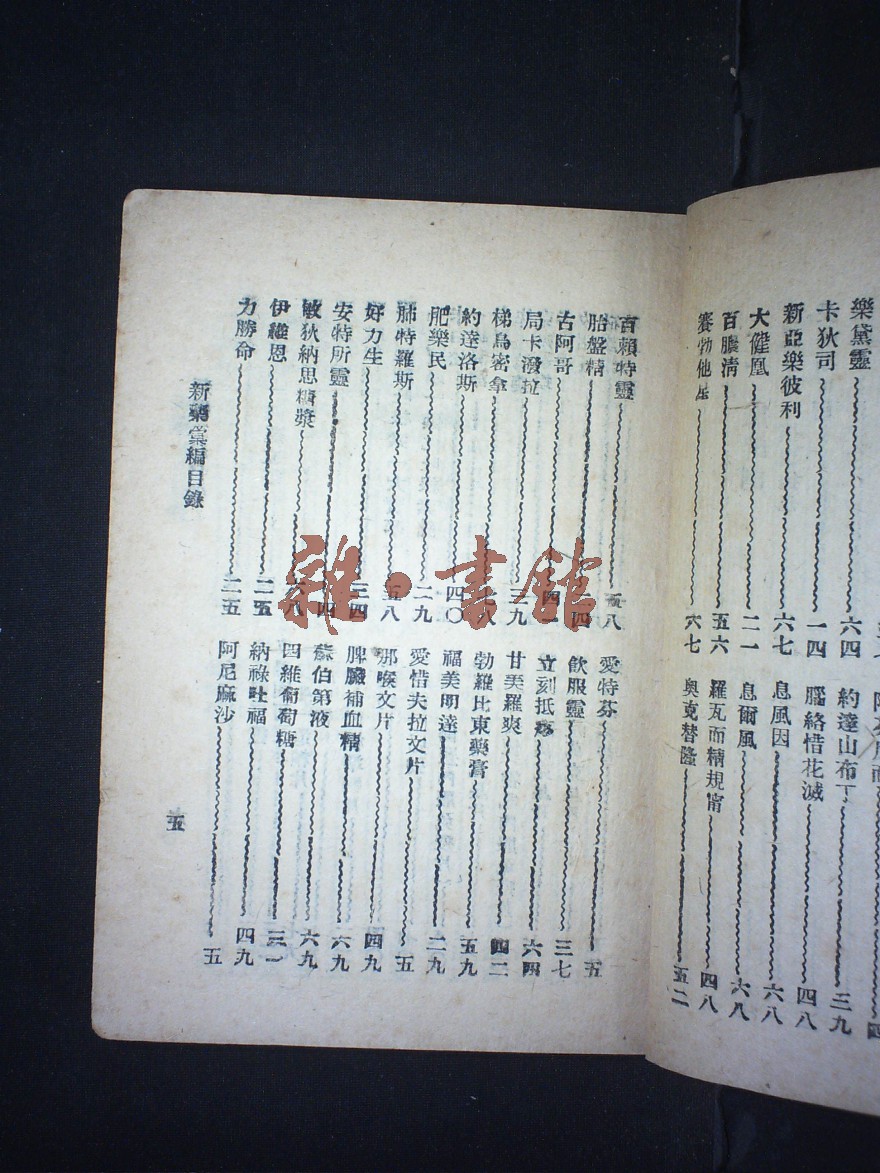 樂黛靈 六四
卡狄司 一四
新亞樂彼利 六七
大健凰 二一
百膿清 五六
賽勃他 六七
約達山布丁 三九
腦絡惜花滅 四八
息風因 六八
息爾風 六八
羅瓦而精規甯 四八
奧克替隆 五二
百賴特靈 五八
胎盤精 四
古阿哥 四一
局卡潑拉 三九
梯鳥密拿 二八
約達洛斯 四〇
肥樂民 二九
肺特羅斯 五八
好力生 三四
安特所靈 四
敏狄納思糖漿 六八
伊維恩 二五
力勝命 二五
愛特芬 五
飲服靈 三七
立刻抵痧 六四
甘美羅爽 四二
勃羅比東藥膏 五九
福美明達 二九
愛惜夫拉文片 五
那喉文片 四九
脾臟補血精 六九
蘇伯第液 六九
四維葡萄糖 三一
納祿吐福 四九
阿尼麻沙 五
新藥彙編目錄
五
雜·書館